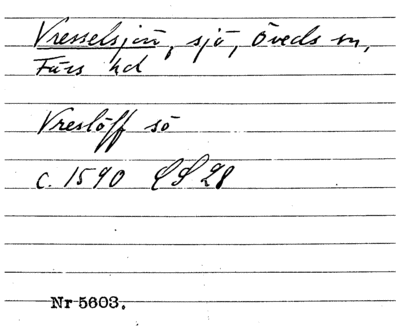 Vresselsjön, sjö, Öveds sn,
Färs hd
Vreslöff sö
c. 1590 LS 28
Nr 5603.